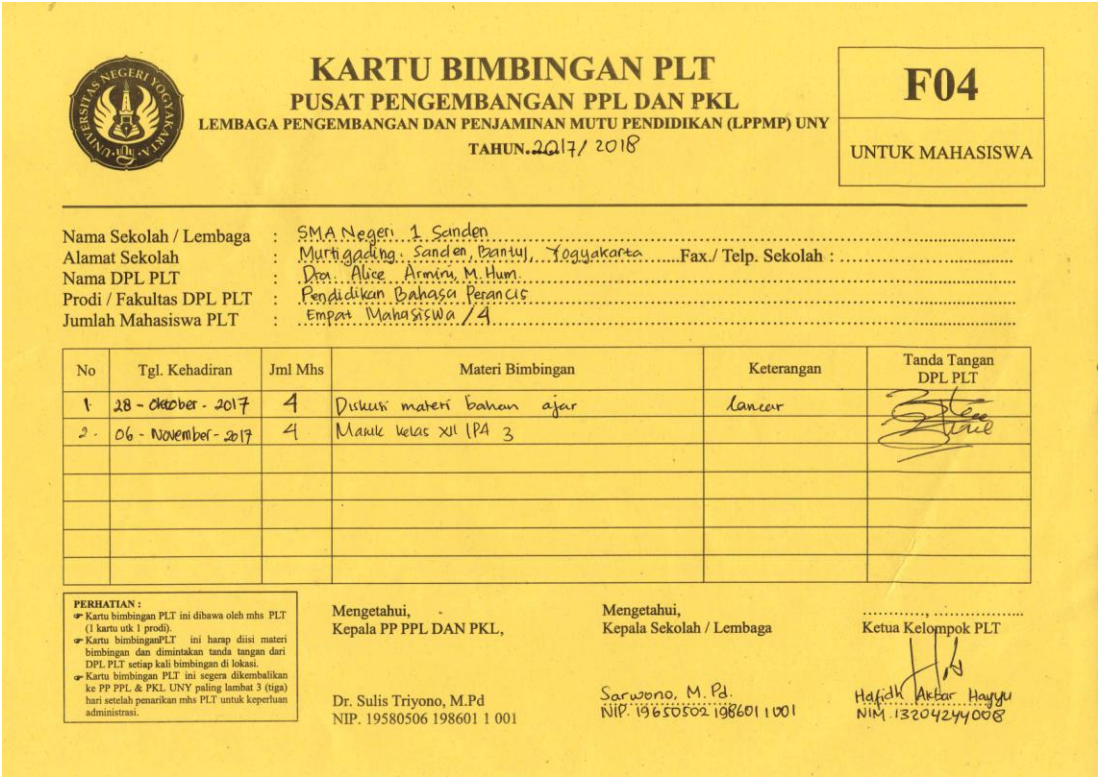 UNIVERSITAS NEGERI YOGYAKARTA
UNY
KARTU BIMBINGAN PLT
PUSAT PENGEMBANGAN PPL DAN PKL
LEMBAGA PENGEMBANGAN DAN PENJAMINAN MUTU PENDIDIKAN (LPPMP) UNY
TAHUN..2017/ 2018
F04
UNTUK MAHASISWA
Nama Sekolah / Lembaga : SMA Negeri 1 Sanden
Alamat Sekolah : Murtigading, Sanden, Bantul, Yogyakarta Fax./ Telp. Sekolah :
Nama DPL PLT : Dra. Alice Armini, M. Hum.
Prodi / Fakultas DPL PLT : Pendidikan Bahasa Perancis
Jumlah Mahasiswa PLT : Empat Mahasiswa / 4
No Tgl. Kehadiran Jml Mhs Materi Bimbingan Keterangan Tanda Tangan DPL PLT
1. 28 - Oktober - 2017 4 Diskusi materi bahan ajar lancar
2. 06 - November - 2017 4 Masuk kelas XII IPA 3
PERHATIAN :
☞ Kartu bimbingan PLT ini dibawa oleh mhs PLT
(1 kartu utk 1 prodi).
☞ Kartu bimbinganPLT ini harap diisi materi
bimbingan dan dimintakan tanda tangan dari
DPL PLT setiap kali bimbingan di lokasi.
☞ Kartu bimbingan PLT ini segera dikembalikan
ke PP PPL & PKL UNY paling lambat 3 (tiga)
hari setelah penarikan mhs PLT untuk keperluan
administrasi.
Mengetahui,
Kepala PP PPL DAN PKL,
Dr. Sulis Triyono, M.Pd
NIP. 19580506 198601 1 001
Mengetahui,
Kepala Sekolah / Lembaga
Sarwono, M. Pd.
NIP. 19650502 198601 1 001
............, ......................
Ketua Kelompok PLT
Hafidh Akbar Hayyu
NIM. 13204244008